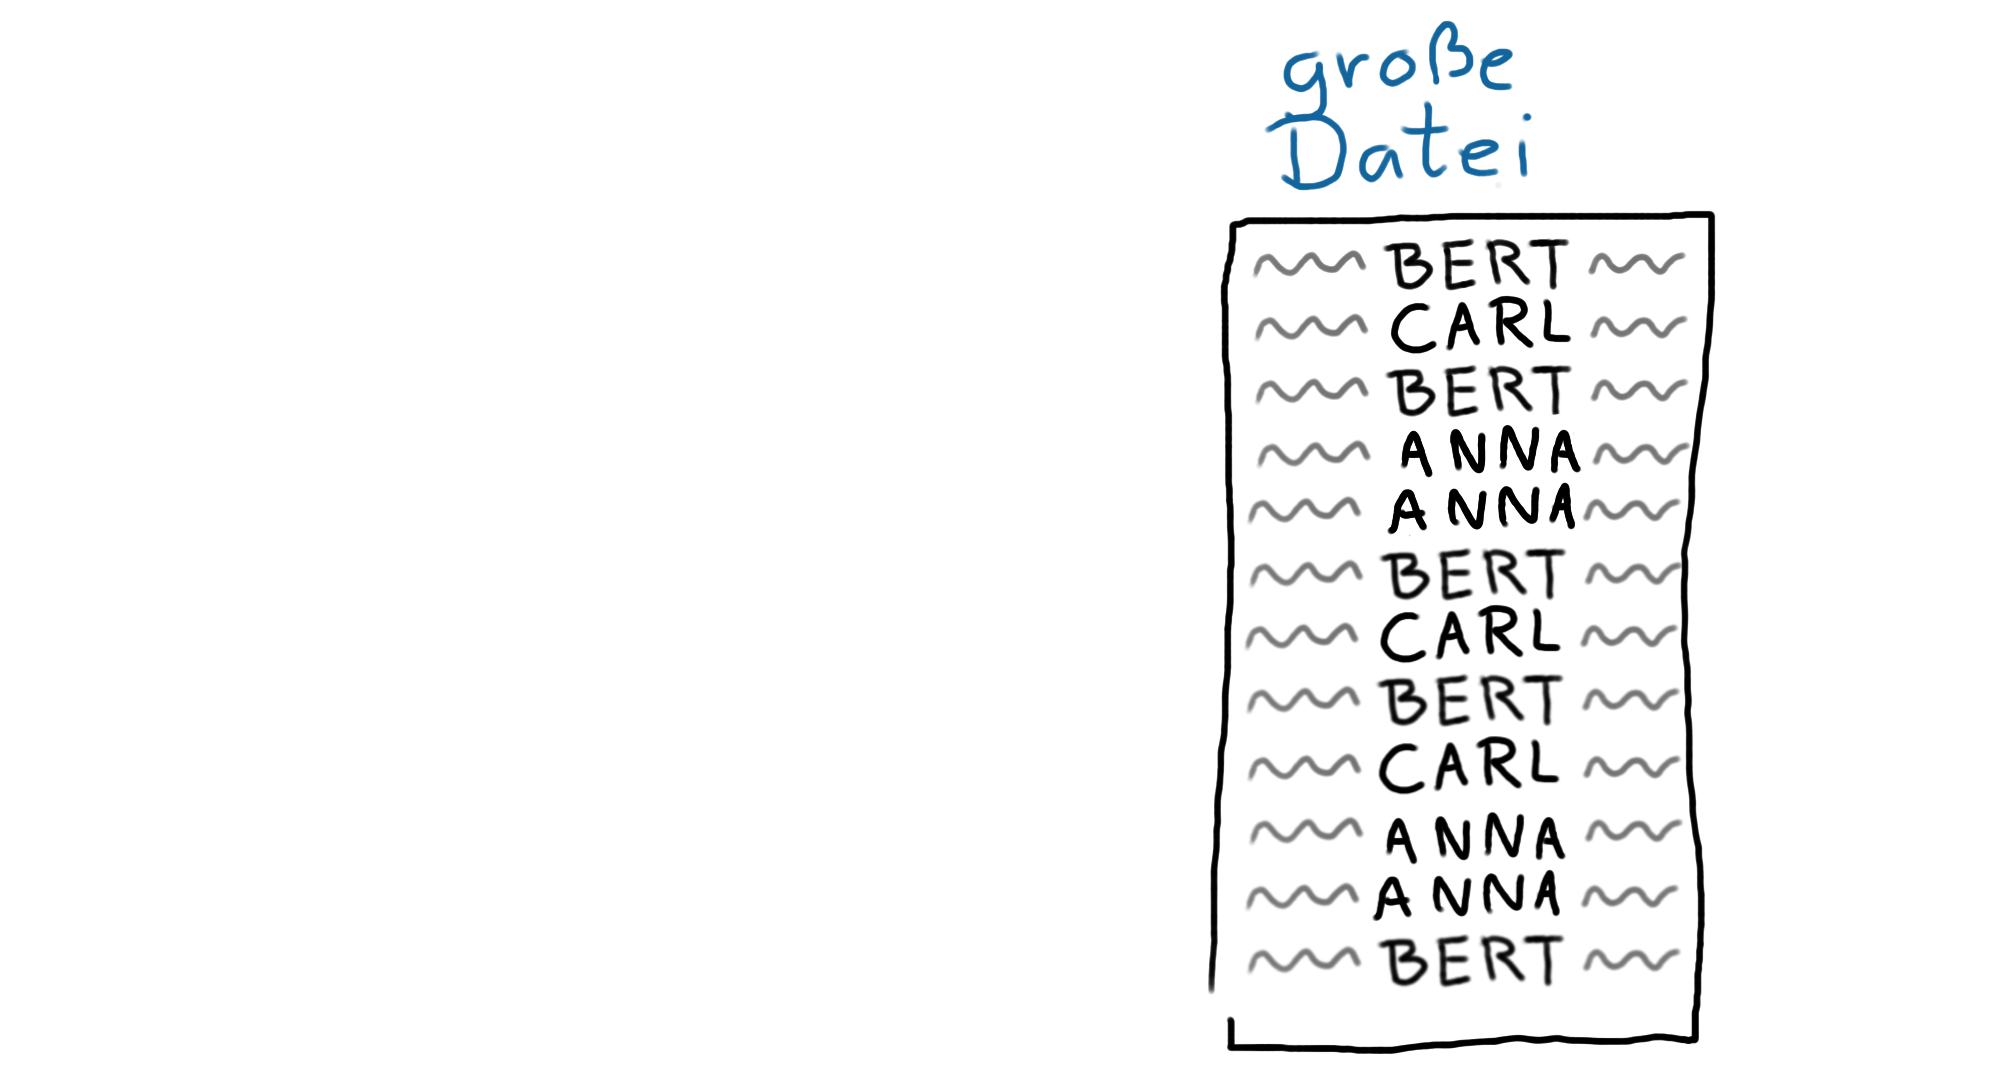 große
Datei
BERT
CARL
BERT
ANNA
ANNA
BERT
CARL
BERT
CARL
ANNA
ANNA
BERT